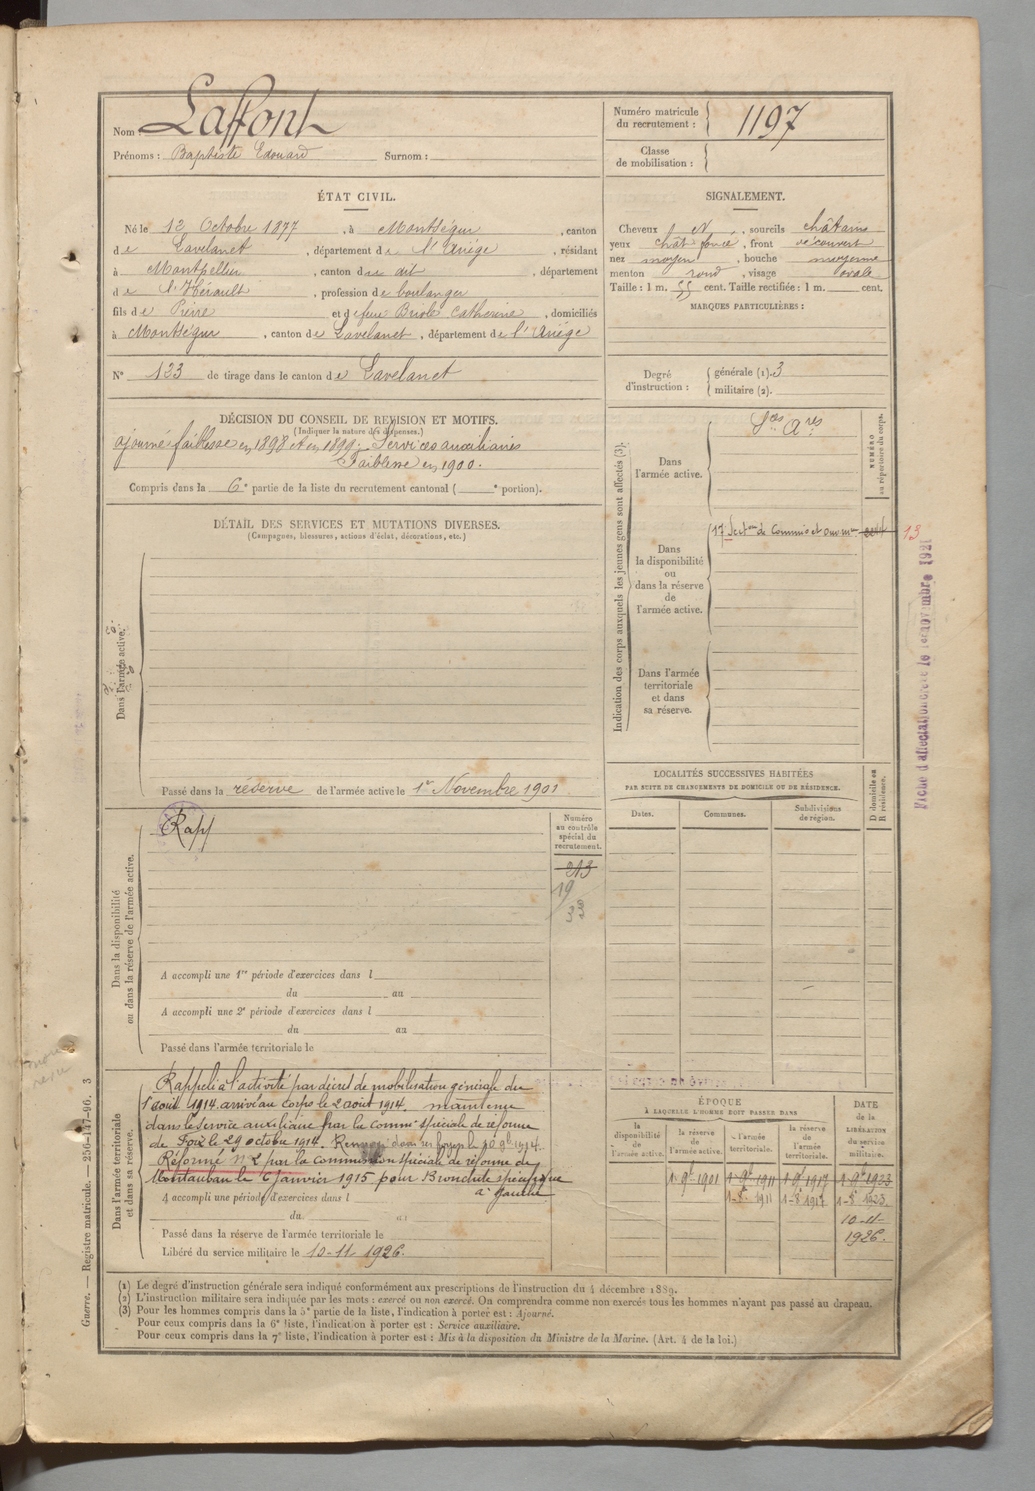 Nom : Laffont
Prénoms : Baptiste Edouard Surnom :
Numéro matricule du recrutement : 1197
Classe de mobilisation :
ÉTAT CIVIL.
Né le 12 Octobre 1877, à Montségur, canton
de Lavelanet, département de l'Ariège, résidant
à Montpellier, canton du dit, département
de l'Hérault, profession de boulanger
fils de Pierre et de feue Briole Catherine, domiciliés
à Montségur, canton de Lavelanet, département de l'Ariège
N° 133 de tirage dans le canton de Lavelanet
SIGNALEMENT.
Cheveux N, sourcils châtains
yeux chât foncé, front découvert
nez moyen, bouche moyenne
menton rond, visage ovale
Taille : 1 m. 55 cent. Taille rectifiée : 1 m. cent.
MARQUES PARTICULIÈRES :
Degré d'instruction : générale (1). 3
militaire (2).
DÉCISION DU CONSEIL DE REVISION ET MOTIFS.
(Indiquer la nature des dispenses.)
ajourné faiblesse en 1898 et en 1899. Services auxiliaires
Faiblesse en 1900.
Compris dans la 6e partie de la liste du recrutement cantonal ( e portion).
DÉTAIL DES SERVICES ET MUTATIONS DIVERSES.
(Campagnes, blessures, actions d'éclat, décorations, etc.)
Dans l'armée active.
Passé dans la réserve de l'armée active le 1er Novembre 1901
Indication des corps auxquels les jeunes gens sont affectés (3).
NUMÉRO au répertoire du corps.
Dans l'armée active.
Sces Ares
Dans la disponibilité ou dans la réserve de l'armée active.
17 Section de Commis et Ouvriers
13
Dans l'armée territoriale et dans sa réserve.
Fiche d'affectation créée le novembre 1921
LOCALITÉS SUCCESSIVES HABITÉES
PAR SUITE DE CHANGEMENTS DE DOMICILE OU DE RÉSIDENCE.
Dates. Communes. Subdivisions de région. D domicile ou R résidence.
Dans la disponibilité ou dans la réserve de l'armée active.
Rapp
Numéro au contrôle spécial du recrutement.
213
19
33
A accompli une 1re période d'exercices dans l
du au
A accompli une 2e période d'exercices dans l
du au
Passé dans l'armée territoriale le
Dans l'armée territoriale et dans sa réserve.
Rappelé à l'activité par décret de mobilisation générale du
1er août 1914. arrivé au Corps le 2 août 1914. maintenu
dans le service auxiliaire par la Comm. spéciale de réforme
de Foix le 29 octobre 1914. Renvoyé dans ses foyers le 9bre 1914.
Réformé N° 2 par la Commission spéciale de réforme de
Montauban le 6 janvier 1915 pour Bronchite spécifique
à gauche
A accompli une période d'exercices dans l
du au
Passé dans la réserve de l'armée territoriale le
Libéré du service militaire le 10-11 1926.
ÉPOQUE
À LAQUELLE L'HOMME DOIT PASSER DANS
la disponibilité de l'armée active. la réserve de l'armée active. l'armée territoriale. la réserve de l'armée territoriale.
DATE de la LIBÉRATION du service militaire.
1-9bre 1901 1-9bre 1911 1-9bre 1917 1-9bre 1923
1-8bre 1911 1-8bre 1917 1-8bre 1923.
10-11
1926.
(1) Le degré d'instruction générale sera indiqué conformément aux prescriptions de l'instruction du 4 décembre 1889.
(2) L'instruction militaire sera indiquée par les mots : exercé ou non exercé. On comprendra comme non exercés tous les hommes n'ayant pas passé au drapeau.
(3) Pour les hommes compris dans la 5e partie de la liste, l'indication à porter est : Ajourné.
Pour ceux compris dans la 6e liste, l'indication à porter est : Service auxiliaire.
Pour ceux compris dans la 7e liste, l'indication à porter est : Mis à la disposition du Ministre de la Marine. (Art. 4 de la loi.)
Guerre. — Registre matricule. — 256-147-96. 3